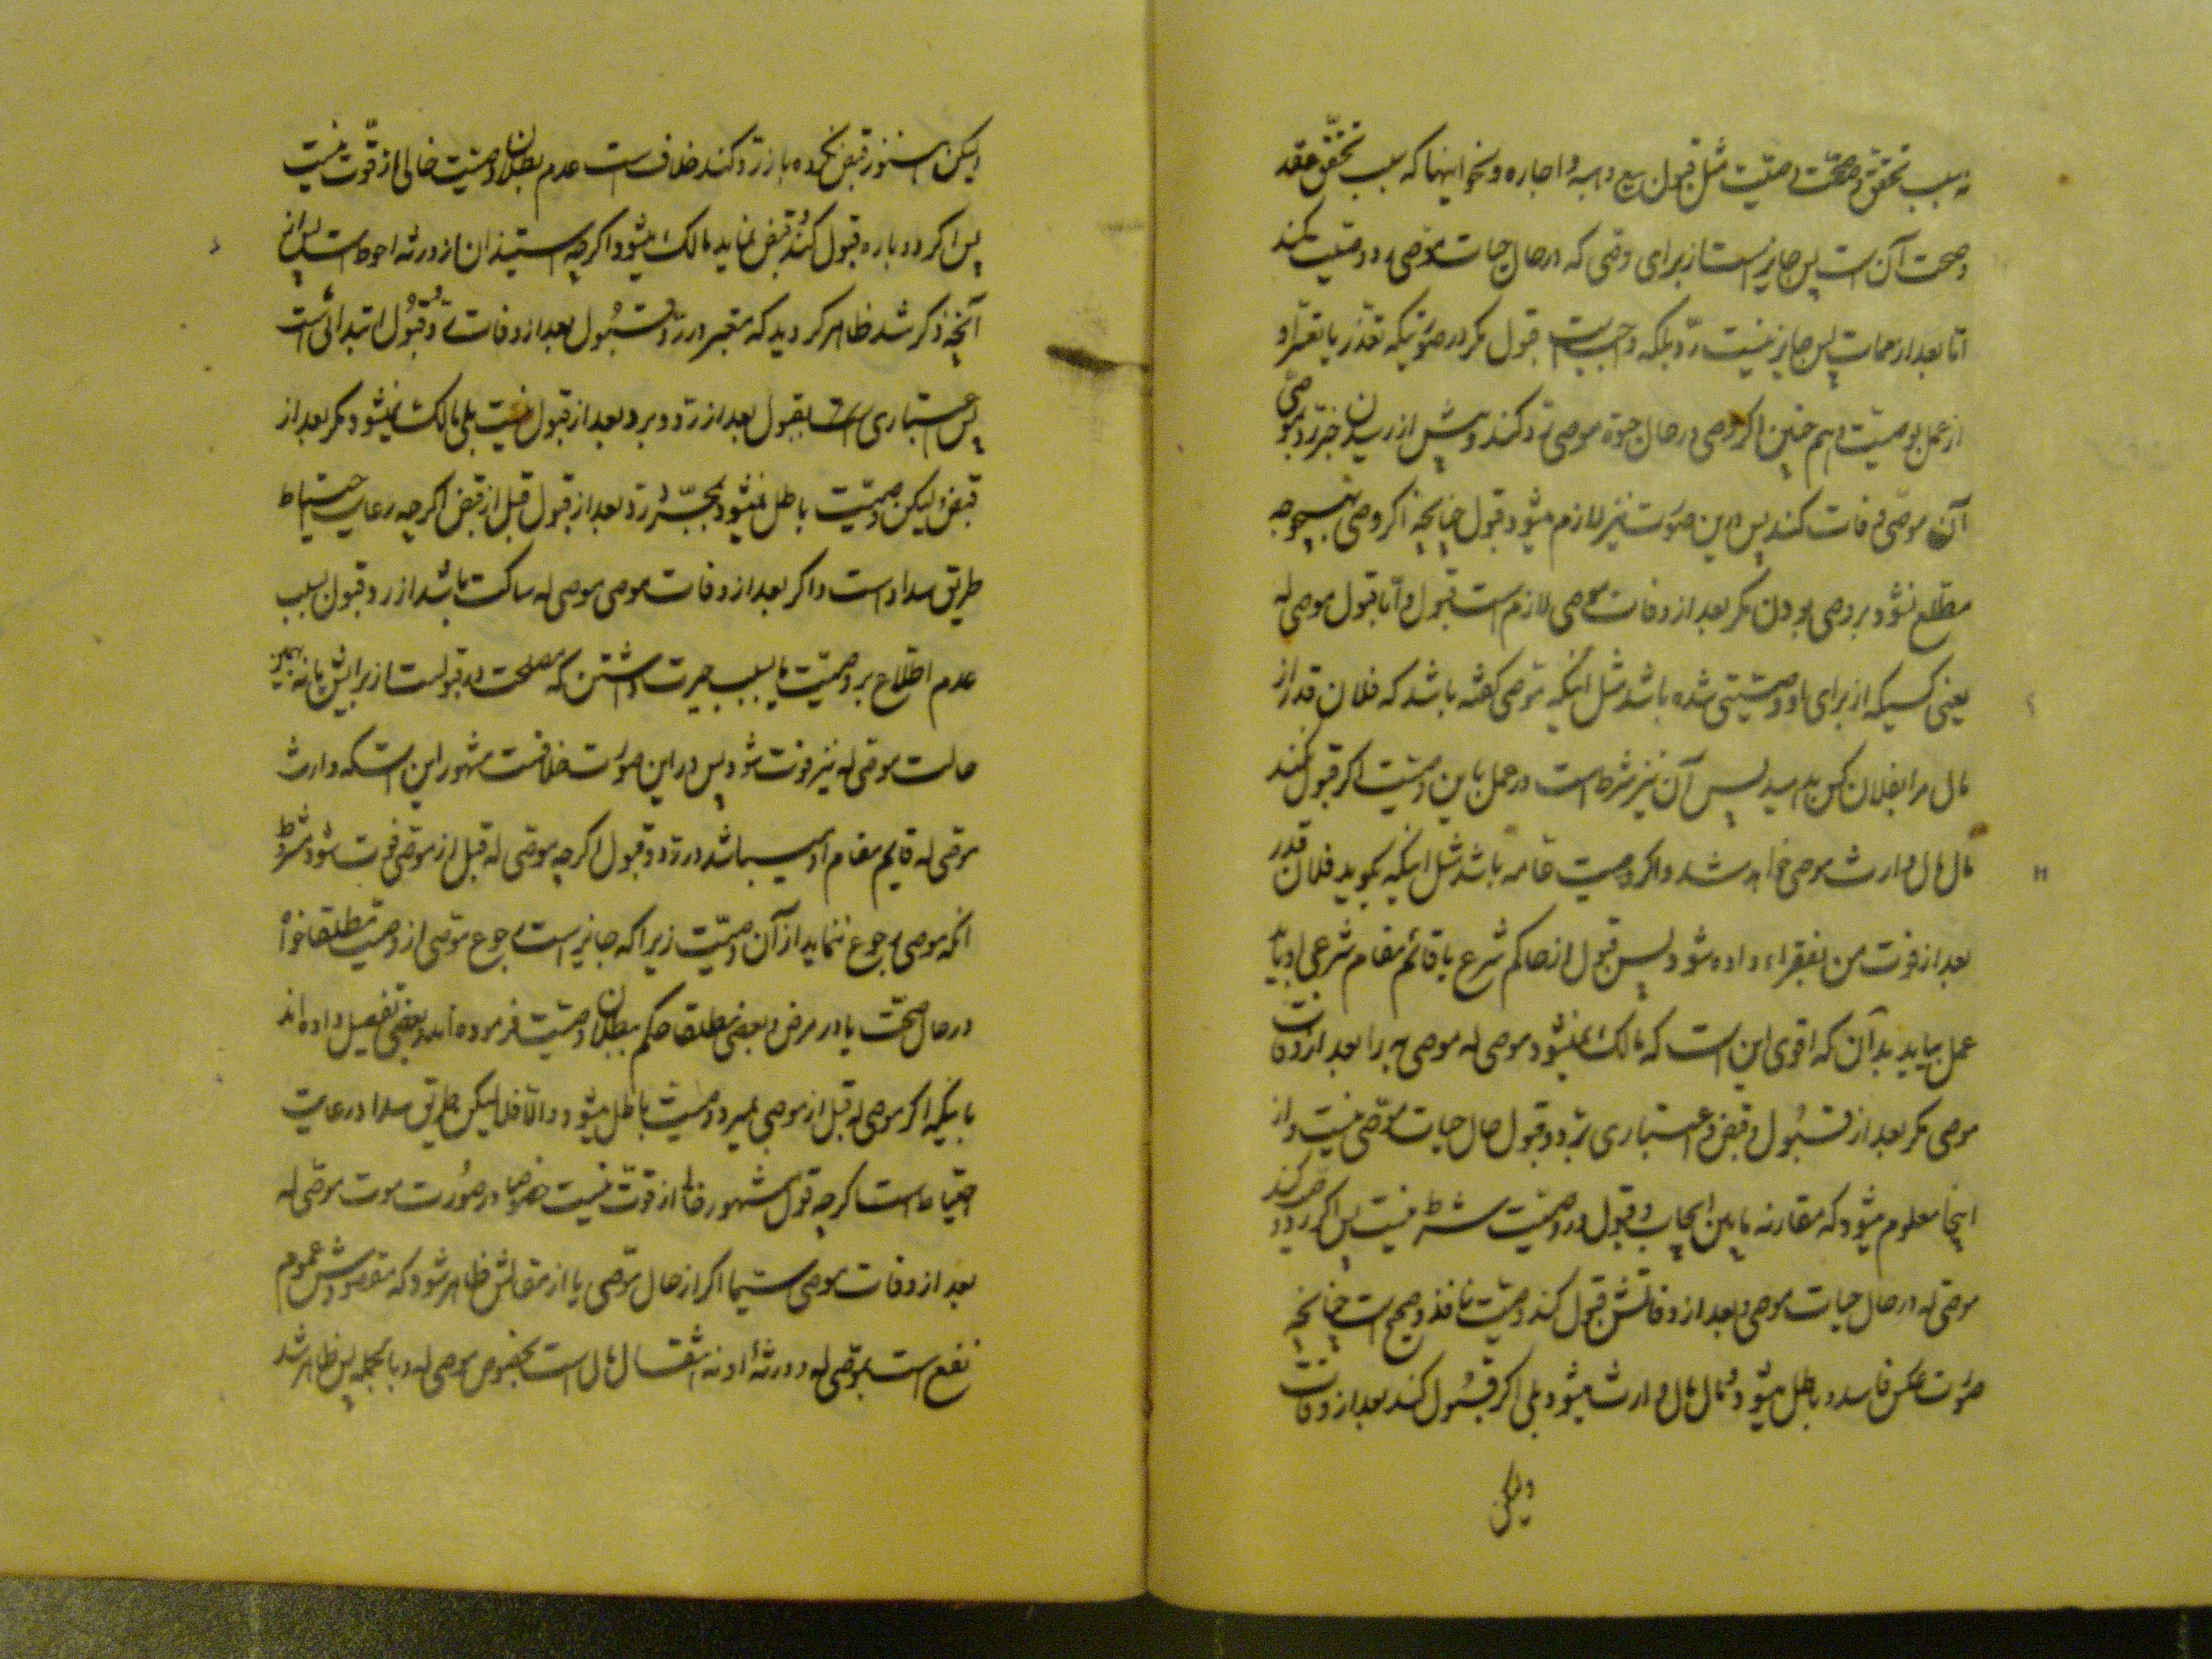 نه سبب تحقق و صحت وصیّت مثل قبول بیع و هبه و اجاره و نحو اینها که سبب تحقّق عقد
و صحت آن است پس جایز است از برای وصی که در حال حیات موصی رد وصیّت کند
امّا بعد از ممات پس جایز نیست ردّ بلکه واجب است قبول مگر در صورتیکه تعذّر یا تعسّر او
از عمل بوصیّت و هم چنین اگر وصی در حال حیوة موصی رد کند و پیش از رسیدن خبر رد بموصی
آن موصی وفات کند پس درین صورت نیز لازم میشود قبول چنانچه اگر وصی بهیچوجه
مطّلع نشود بر وصی بودن مگر بعد از وفات موصی لازم است قبول و امّا قبول موصی له
یعنی کسیکه از برای او وصیّتی شده باشد مثل اینکه موصی گفته باشد که فلان قدر از
مال مرا بفلان کس بدهید پس آن نیز شرط است در عمل باین وصیّت اگر قبول نکند
مال مال وارث موصی خواهد شد و اگر وصیت عامه باشد مثل اینکه بگوید فلان قدر
بعد از فوت من بفقراء داده شود پس قبول از حاکم شرع یا قائم مقام شرعی او باید
بعمل بیاید بدآن که اقوی این است که مالک نمیشود موصی له موصی به را بعد از وفات
موصی مگر بعد از قبول و قبض و اعتباری برد و قبول حال حیات موصی نیست و از
اینجا معلوم میشود که مقارنه ما بین ایجاب و قبول در وصیّت شرط نیست پس اگر رد کند
موصی له در حال حیات موصی و بعد از وفاتش قبول کند وصیّت نافذ و صحیح است چنانچه
صورت عکس فاسد و باطل میشود و مال مال وارث میشود بلی اگر قبول کند بعد از وفات
ولیکن
ولیکن هنوز قبض نکرده باز رد کند خلاف است عدم بطلان وصیّت خالی از قوّت نیست
پس اگر دوباره قبول کند و قبض نماید مالک میشود و اگرچه استیذان از ورثه احوط است پس از
آنچه ذکر شد ظاهر گردید که معتبر در ردّ و قبول بعد از وفات ردّ و قبول ابتدائی است
پس اعتباری است بقبول بعد از رد و برد بعد از قبول نیست بلی مالک نمیشود مگر بعد از
قبض ولیکن وصیّت باطل نمیشود بمجّرد ردّ بعد از قبول قبل از قبض اگرچه رعایت احتیاط
طریق سداد است و اگر بعد از وفات موصی موصی له ساکت باشد از رد و قبول بسبب
عدم اطّلاع بر وصیّت یا بسبب حیرت داشتن که مصلحت در قبولست از برایش یا نه بهمین
حالت موصی له نیز فوت شود پس در این صورت خلافست مشهور این است که وارث
موصی له قایم مقام او میباشد در رد و قبول اگرچه موصی له قبل از موصی فوت شود بشرط
آنکه موصی رجوع ننماید از آن وصیّت زیرا که جایز است رجوع موصی از وصیّت مطلقا خواه
در حال صحّت یا در مرض و بعضی مطلقا حکم ببطلان وصیّت فرموده اند و بعضی تفصیل داده اند
باینکه اگر موصی له قبل از موصی بمیرد وصیّت باطل میشود و الّا فلا لیکن طریق سداد رعایت
احتیاط است اگرچه قول مشهور خالی از قوّت نیست خصوصا در صورت موت موصی له
بعد از وفات موصی سیّما اگر از حال موصی یا از مقالش ظاهر شود که مقصودش عموم
نفع است بموصی له و ورثهٔ او نه انتقال مال است بخصوص موصی له و بالجمله پس ظاهر شد